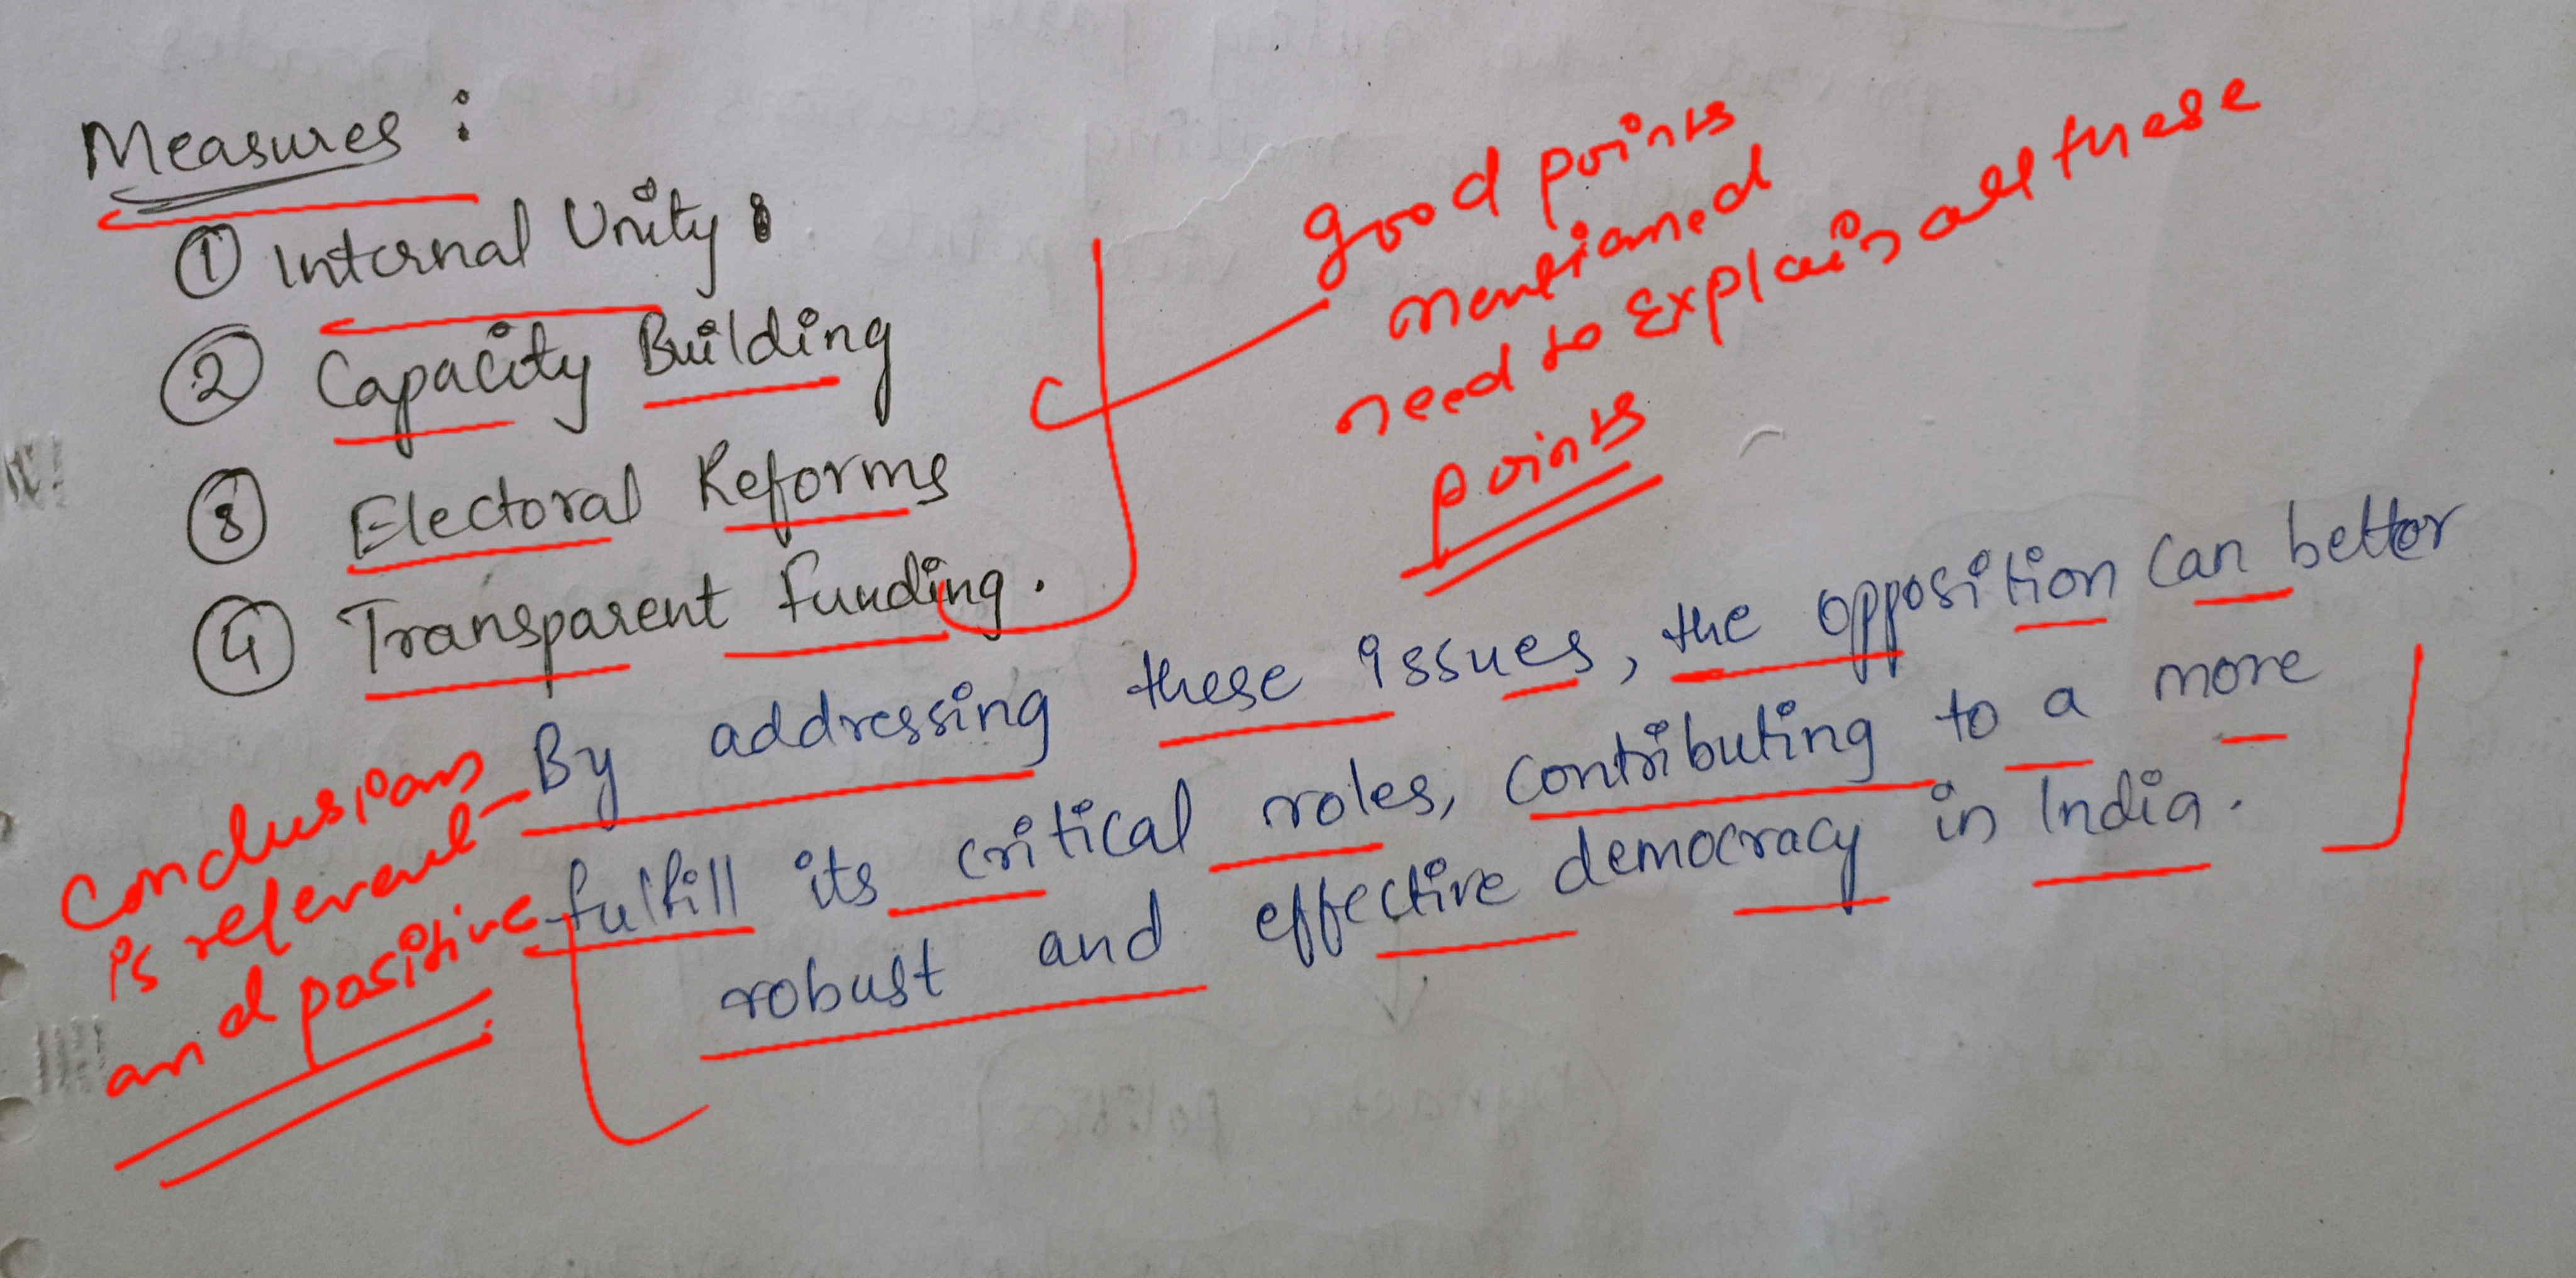 Measures :
① Internal Unity :
② Capacity Building
③ Electoral Reforms
④ Transparent Funding.
good points
mentioned
need to Explain all these
points
By addressing these issues, the opposition can better
fulfill its critical roles, contributing to a more
robust and effective democracy in India.
Conclusion
is relevant
and positive